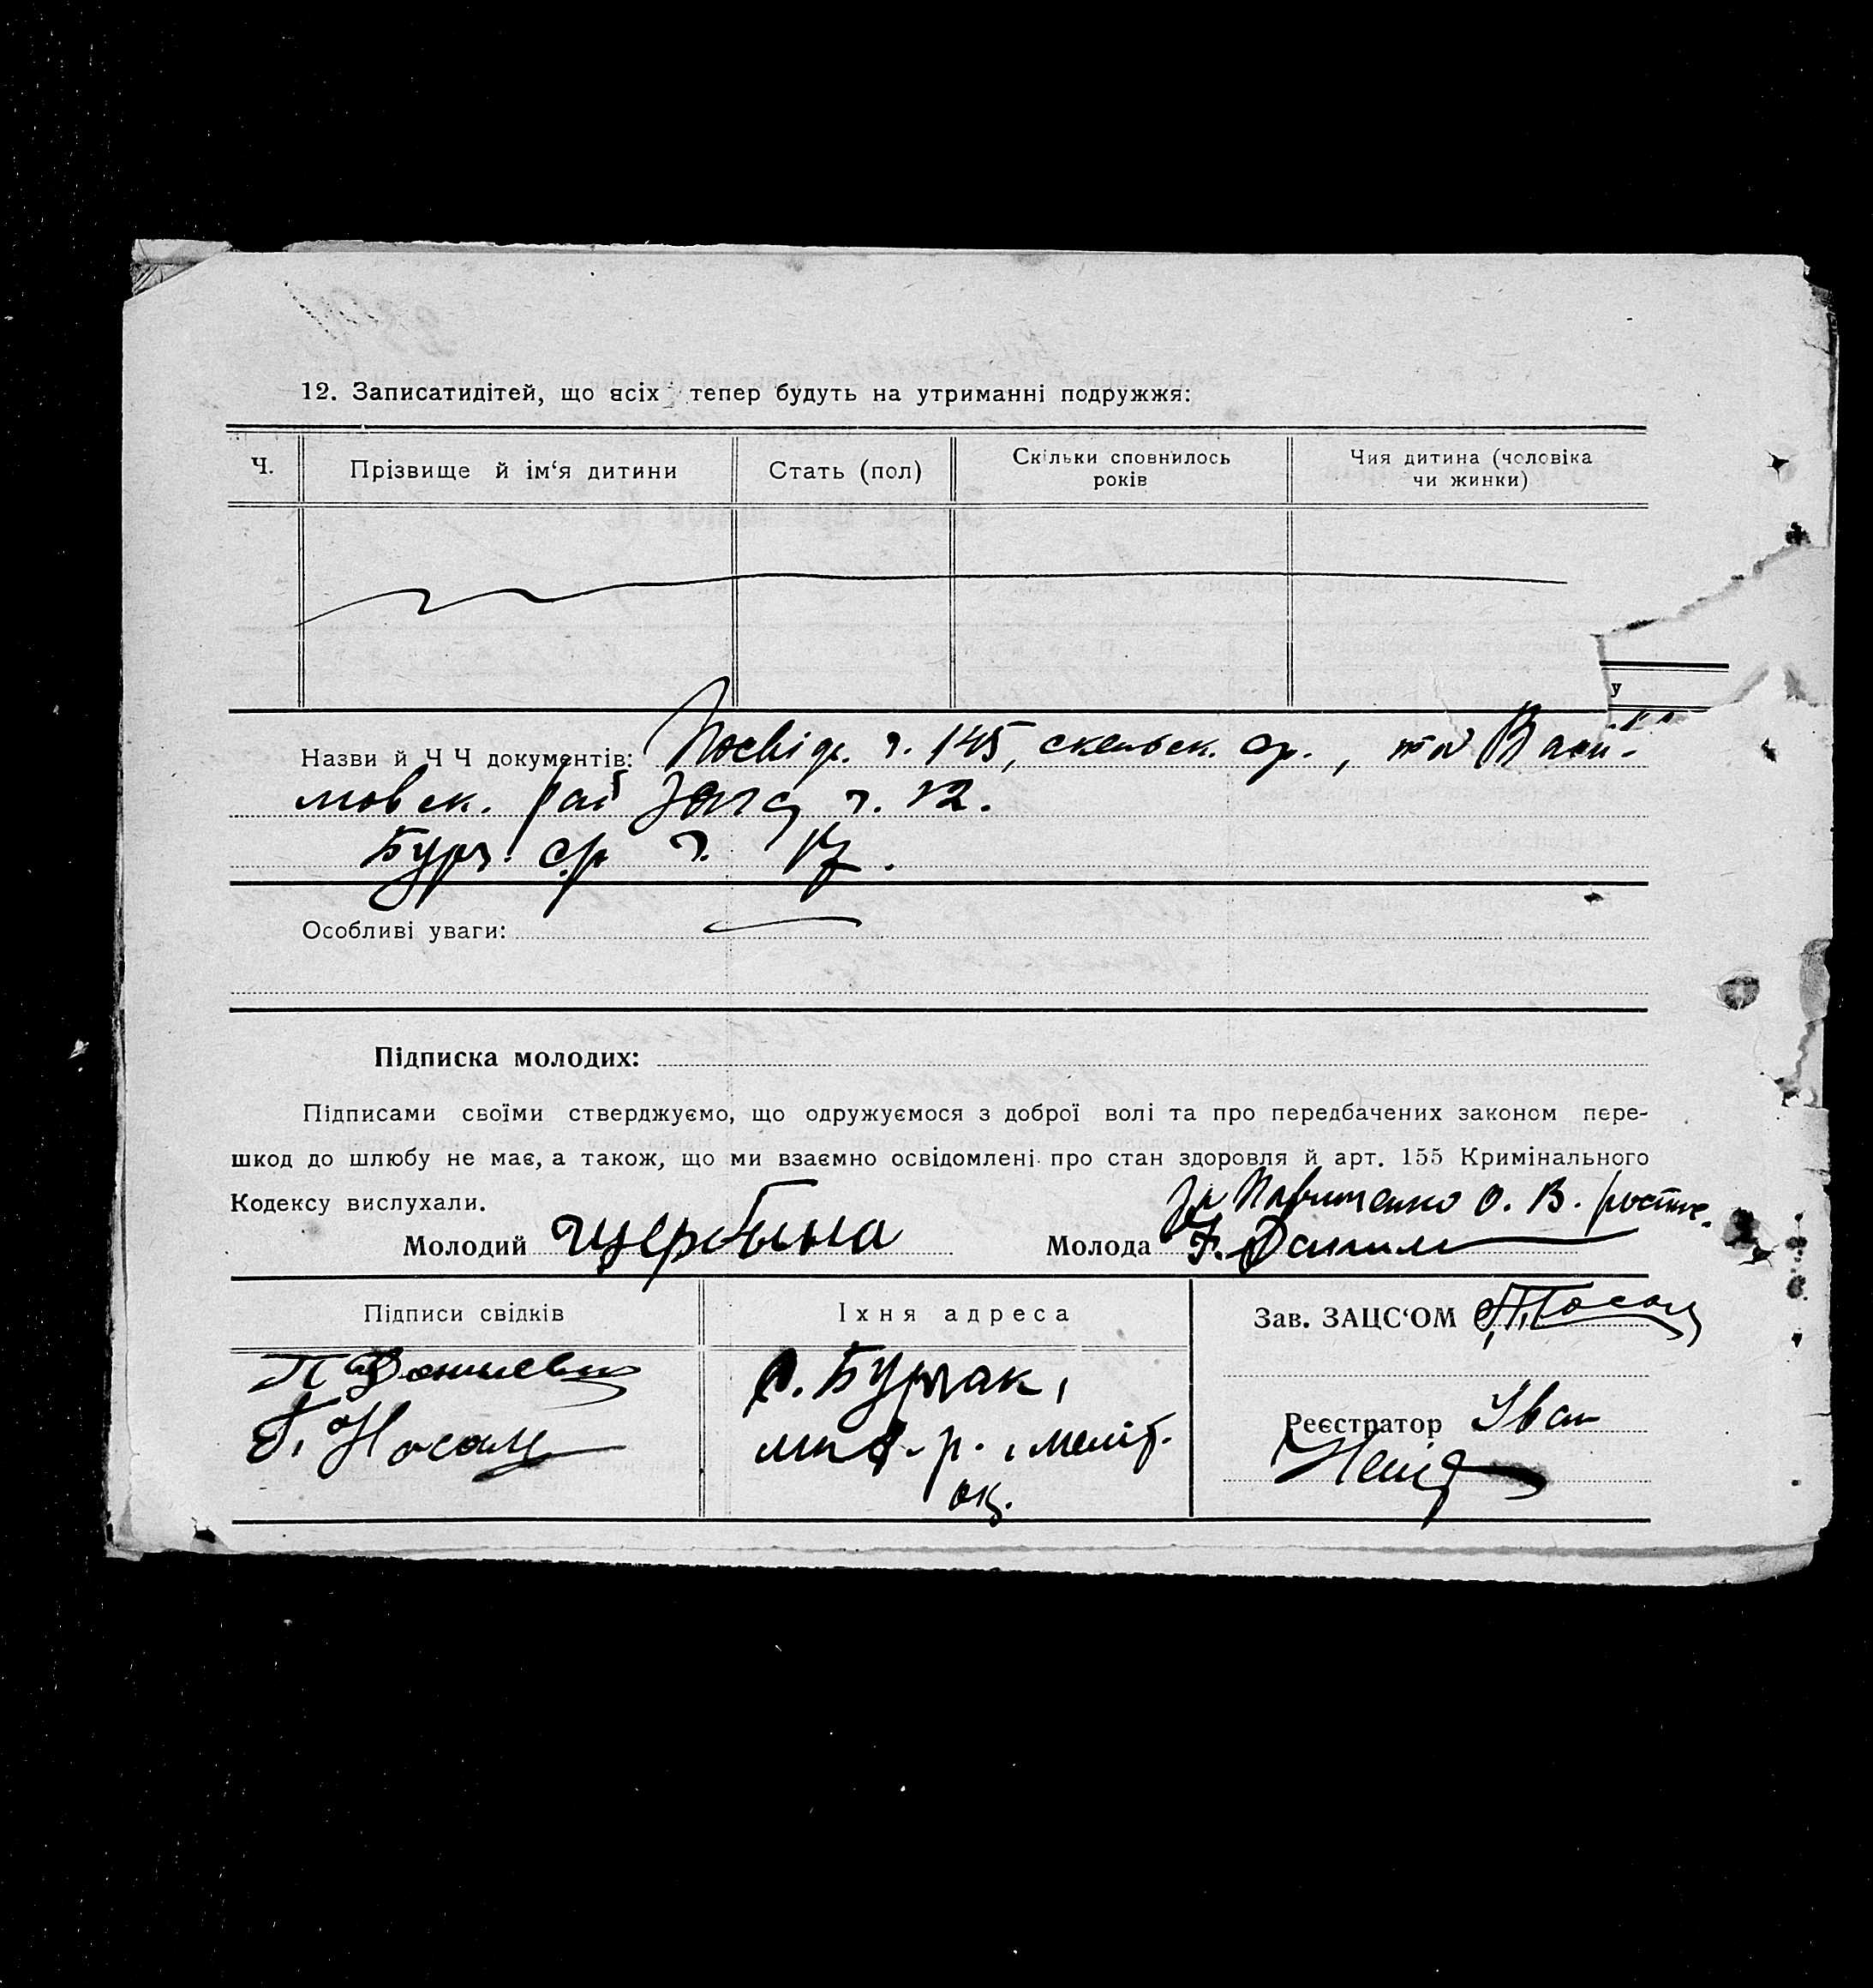 12. Записатидітей, що всіх тепер будуть на утриманні подружжя:
Ч.
Прізвище й ім‘я дитини
Стать (пол)
Скільки сповнилось років
Чия дитина (чоловіка чи жинки)
у
Назви й Ч Ч документів: Посвідч. ч. 145, скельськ. ср., та Васи-
ловськ. рай ч. 12.
Бурч. ср ч. 17.
Особливі уваги:
Підписка молодих:
Підписами своїми стверджуємо, що одружуємося з доброї волі та про передбачених законом пере-
шкод до шлюбу не має, а також, що ми взаємно освідомлені про стан здоровля й арт. 155 Кримінального
Кодексу вислухали.
За О. В. розпис.
Молодий Щербина Молода
Підписи свідків
Їхня адреса
Зав. ЗАЦС‘ОМ Г. Носач
Г. Носач
с. Бурчак,
мих. р., меліт.
ок.
Реєстратор Іван